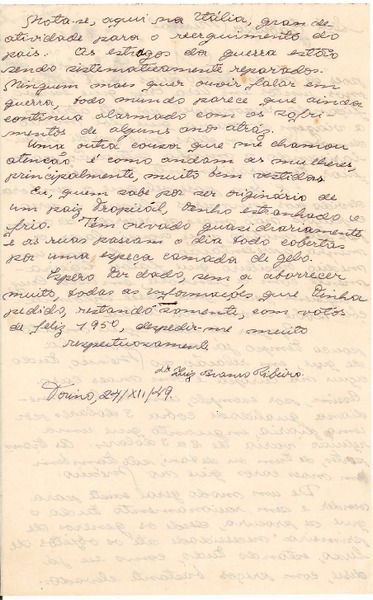 Nota-se, aqui na Itália, grande
atividade para o reerguimento do
país. Os estragos da guerra estão
sendo sistematicamente reparados.
Ninguem mais quer ouvir falar em
guerra, todo mundo parece que ainda
continua alarmado com os sofri-
mentos de alguns anos atrás.
Uma outra cousa que me chamou
atenção, é como andam as mulheres,
principalmente, muito bem vestidas.
Eu, quem sabe por ser originário de
um paiz Tropical, tenho estranhado o
frio. Tem nevado quasi diariamente
e as ruas passam o dia todo cobertas
por uma espeça camada de gelo.
Espero ter dado, sem o aborrecer
muito, todas as informações que tinha
pedido, restando somente, com votos
de feliz 1950, despedir-me muito
respeituosamente
dr Luiz Branco Ribeiro.
Torino, 24/XII/49.